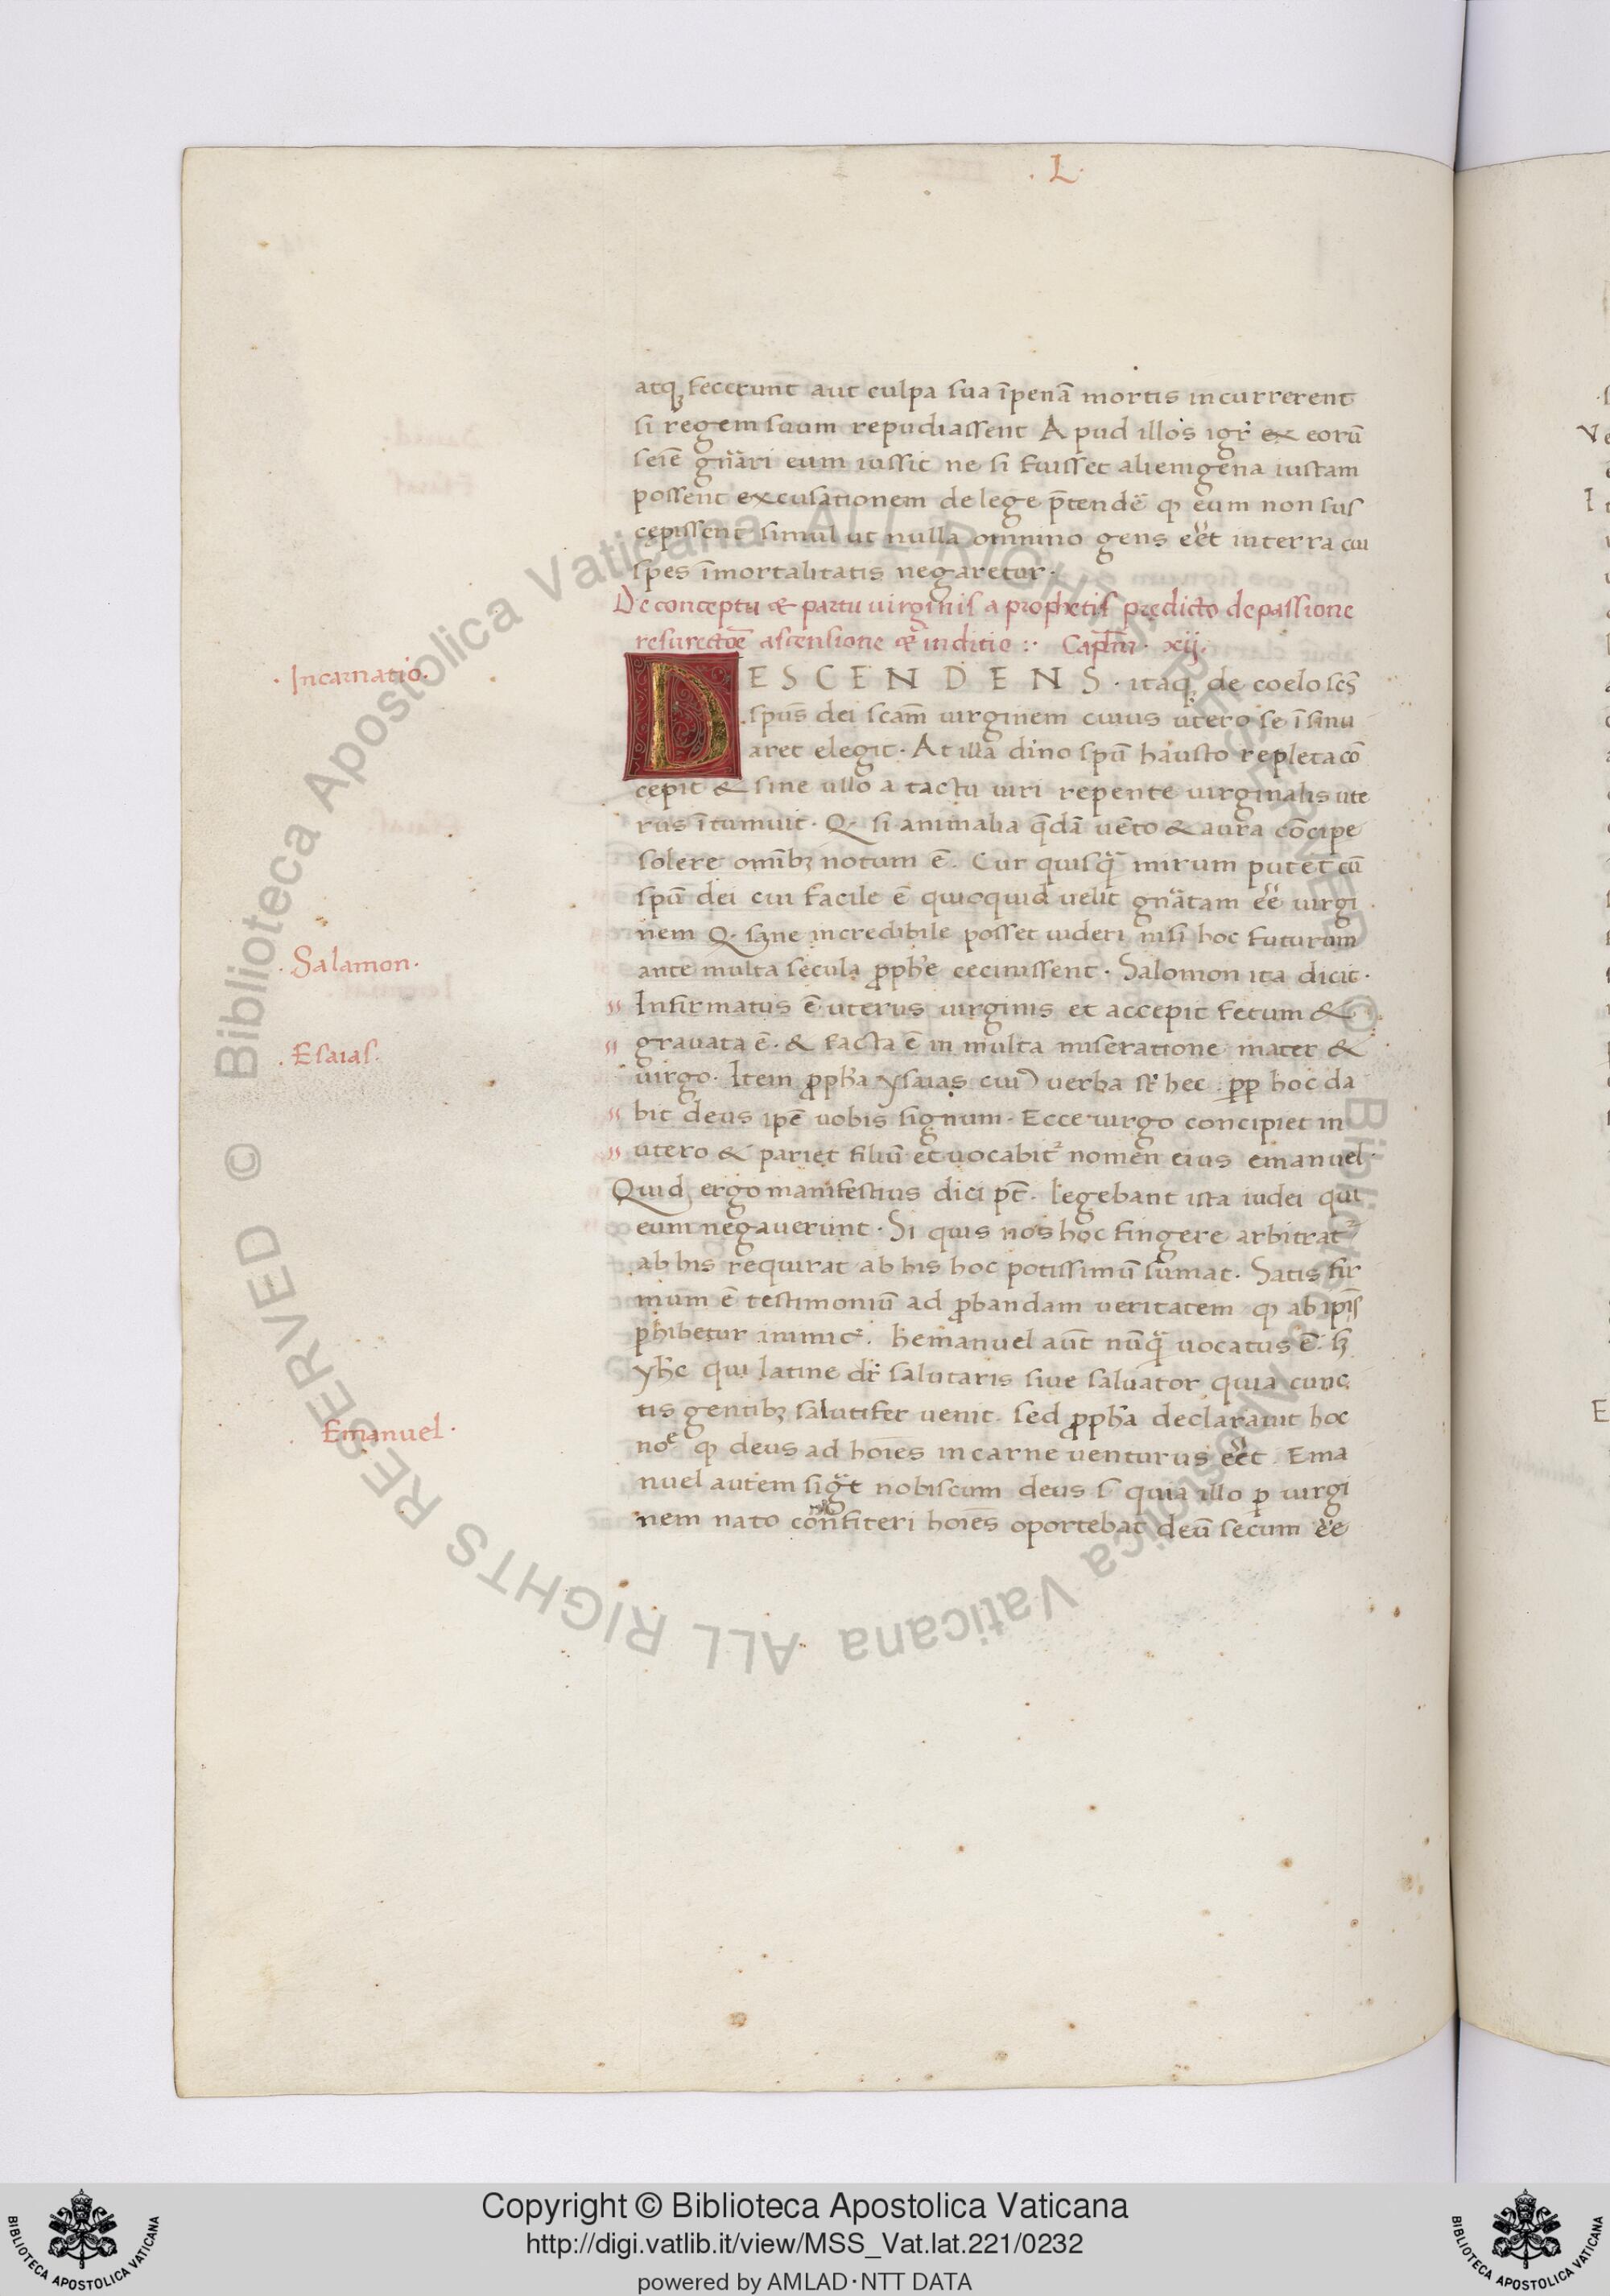 . L .
atqꝫ fecerunt aut culpa sua ĩpenã mortis incurrerent
si regem suum repudiassent Apud illos igr̃ ex eorũ
seiẽ gñari eum iussit ne si fuisset alienigena iustam
possent excusationem de lege p̃tendẽ ꝙ eum non sus
cępissent simul ut nulla omnino gens eẽt interra cui
spes ĩmortalitatis negaretur ·
De conceptu & partu uirginis a prophetis predicto de passione
resurectõe ascensione & inditio :· Capl̃m · xij ·
· Incarnatio ·
DESCENDENS · itaqꝫ de coelo scs̃
spũs dei scam̃ uirginem cuius utero se ĩsinu
aret elegit · At illa diño spũ hausto repleta cõ
cepit & sine ullo a tactu uiri repente uirginalis ute
rus ĩtumuit · Q· si animalia q̃dã uẽto & aura cõcipe
solere omĩbꝫ notum ẽ. Cur quisq̃ mirum putet cũ
spũ dei cui facile ẽ quicquid uelit gñatam eẽ uirgi
nem Q· sane incredibile posset uideri nisi hoc futurum
· Salamon ·
ante multa secula ꝓph̃e cecinissent · Salomon ita dicit ·
Infirmatus ẽ uterus uirginis et accepit fetum &
· Esaias ·
grauata ẽ · & facta ẽ in multa miseratione mater &
uirgo · Item ꝓph̃a ysaias cuiꝰ uerba st̃ hec · ꝓp hoc da
bit deus ipẽ uobis signum · Ecce uirgo concipiet in
utero & pariet filiũ et uocabit̃ nomen eius emanuel ·
Quid ergo manifestius dici pt̃ · legebant ista iudei qui
eum negauerunt · Si quis nos hoc fingere arbitrat̃
ab his requirat ab his hoc potissimũ sumat · Satis fir
mum ẽ testimoniũ ad ꝓbandam ueritatem ꝙ ab ipĩs
phibetur inimic̃ · hemanuel aut̃ nũq̃ uocatus ẽ · sꝫ
yh̃c qui latine dr̃ salutaris siue saluator quia cunc
tis gentibꝫ salutifer uenit · sed ꝓph̃a declarauit hoc
· Emanuel ·
noẽ ꝙ deus ad hoĩes in carne uenturus eẽt · Ema
nuel autem sigt̃ nobiscum deus s̃ quia illo ꝑ uirgi
nem nato confiteri hoĩes oportebat deũ secum eẽ
Copyright © Biblioteca Apostolica Vaticana
http://digi.vatlib.it/view/MSS_Vat.lat.221/0232
powered by AMLAD·NTT DATA
BIBLIOTECA APOSTOLICA VATICANA
BIBLIOTECA APOSTOLICA VATICANA
© Biblioteca Apostolica Vaticana ALL RIGHTS RESERVED
© Biblioteca Apostolica Vaticana ALL RIGHTS RESERVED